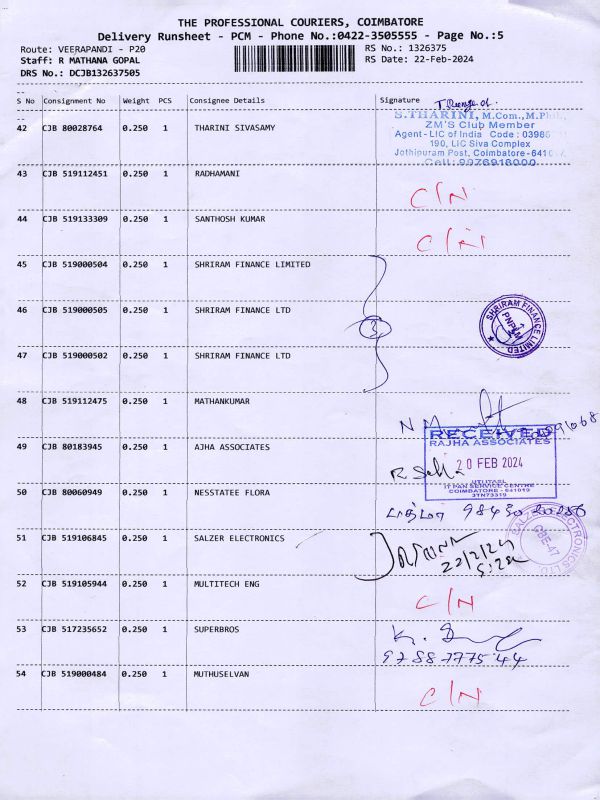 THE PROFESSIONAL COURIERS, COIMBATORE
Delivery Runsheet - PCM - Phone No.:0422-3505555 - Page No.:5
Route: VEERAPANDI - P20 RS No.: 1326375
Staff: R MATHANA GOPAL RS Date: 22-Feb-2024
DRS No.: DCJB132637505
S No Consignment No Weight PCS Consignee Details Signature
S.THARINI, M.Com., M.Phil.,
42 CJB 80028764 0.250 1 THARINI SIVASAMY ZM'S Club Member
Agent - LIC of India Code : 03985
190, LIC Siva Complex
Jothipuram Post, Coimbatore - 641047.
Cell: 9976918000
43 CJB 519112451 0.250 1 RADHAMANI C/N
44 CJB 519133309 0.250 1 SANTHOSH KUMAR C/N
45 CJB 519000504 0.250 1 SHRIRAM FINANCE LIMITED
46 CJB 519000505 0.250 1 SHRIRAM FINANCE LTD 3 SHRIRAM FINANCE LIMITED PNPLM
47 CJB 519000502 0.250 1 SHRIRAM FINANCE LTD
48 CJB 519112475 0.250 1 MATHANKUMAR N M
RECEIVED
RAJHA ASSOCIATES
49 CJB 80183945 0.250 1 AJHA ASSOCIATES 20 FEB 2024
UTIITASL
IT PAN SERVICE CENTRE
COIMBATORE - 641019
3TN73319
50 CJB 80060949 0.250 1 NESSTATEE FLORA பத்மா 98430 20256
51 CJB 519106845 0.250 1 SALZER ELECTRONICS SALZER ELECTRONICS LTD CBE-47
22/2/24
52 CJB 519105944 0.250 1 MULTITECH ENG C/N
53 CJB 517235652 0.250 1 SUPERBROS K.
9788777544
54 CJB 519000484 0.250 1 MUTHUSELVAN C/N